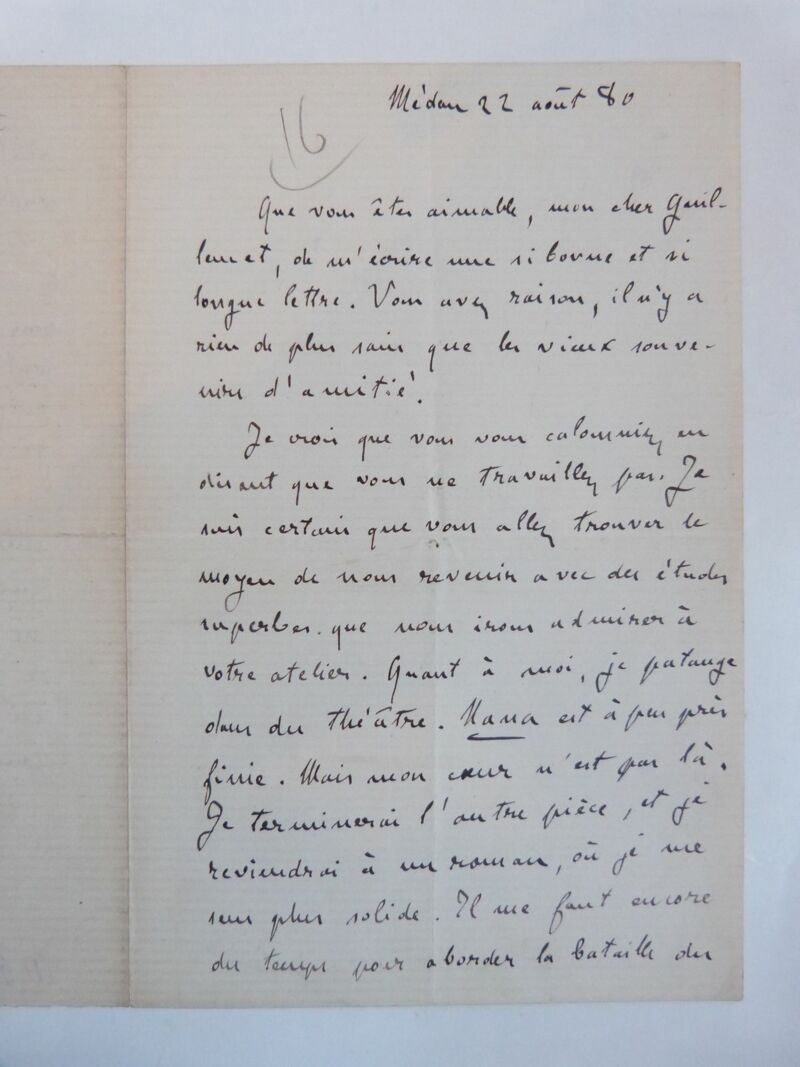 Médan 22 août 80
16
Que vous êtes aimable, mon cher Guil-
lemet, de m'écrire une si bonne et si
longue lettre. Vous avez raison, il n'y a
rien de plus sain que les vieux souve-
nirs d'amitié.
Je crois que vous vous calomniez en
disant que vous ne travaillez pas. Je
suis certain que vous allez trouver le
moyen de nous revenir avec des études
superbes que nous irons admirer à
votre atelier. Quant à moi, je patauge
dans du théâtre. Nana est à peu près
finie. Mais mon cœur n'est pas là.
Je terminerai l'autre pièce, et je
reviendrai à un roman, où je me
sens plus solide. Il me faut encore
du temps pour aborder la bataille du